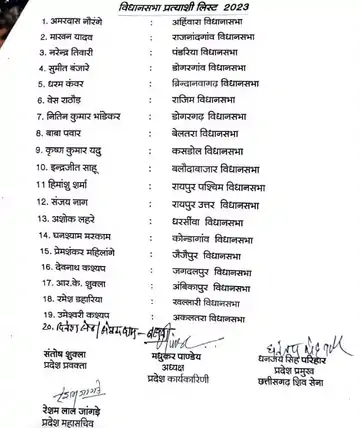 विधानसभा प्रत्याशी लिस्ट 2023
1. अमरदास नौरंगे : अहिंवारा विधानासभा
2. माखन यादव : राजनांदगांव विधानसभा
3. नरेन्द्र तिवारी : पंडरिया विधानसभा
4. सुमीत बंजारे : डोंगरगांव विधानसभा
5. धरम कंवर : ब्रिन्दानवागढ़ विधानसभा
6. वेस राठौड़ : राजिम विधानसभा
7. नितिन कुमार भांडेकर : डोंगरगढ़ विधानसभा
8. बाबा पवार : बेलतरा विधानसभा
9. कृष्ण कुमार यदु : कसडोल विधानसभा
10. इन्द्रजीत साहू : बलौदाबाजार विधानसभा
11 हिमांशु शर्मा : रायपुर पश्चिम विधानसभा
12. संजय नाग : रायपुर उत्तर विधानसभा
13. अशोक लहरे : धरसींवा विधानसभा
14. घनश्याम मरकाम : कोन्डागांव विधानसभा
15. प्रेमशंकर महिलांगे : जैजैपुर विधानसभा
16. देवनाथ कश्यप : जगदलपुर विधानसभा
17. आर.के. शुक्ला : अंबिकापुर विधानसभा
18. रमेश डहारिया : खल्लारी विधानसभा
19. उमेश्वरी कश्यप : अकलतरा विधानसभा
20.
संतोष शुक्ला मधुकर पाण्डेय धनंजय सिंह परिहार
प्रदेश प्रवक्ता अध्यक्ष प्रदेश प्रमुख
प्रदेश कार्यकारिणी छत्तीसगढ़ शिव सेना
रेशम लाल जांगड़े
प्रदेश महासचिव